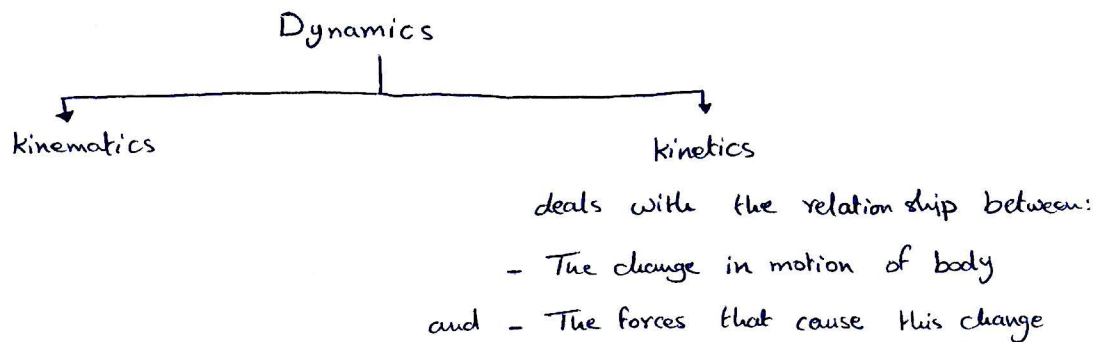 Dynamics
kinematics
kinetics
deals with the relationship between:
- The change in motion of body
and - The forces that cause this change